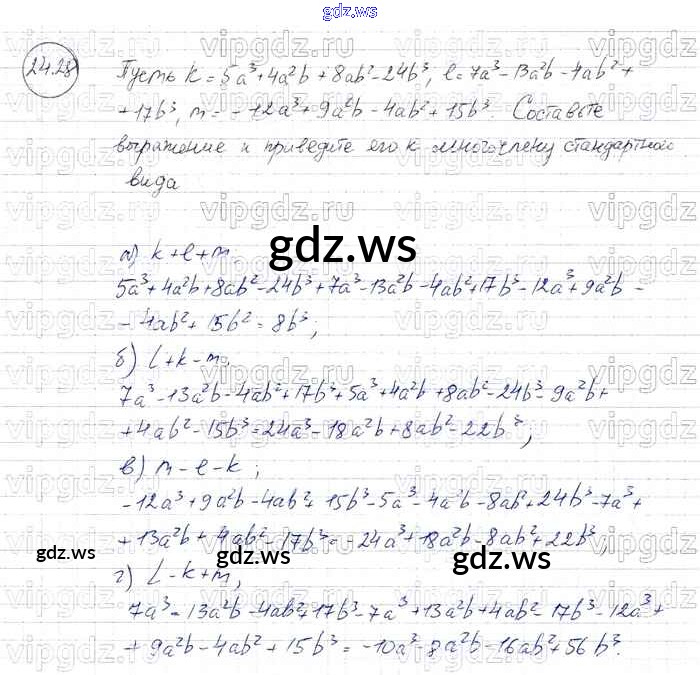 gdz.ws
24.28 Пусть k = 5a³+4a²b + 8ab²-24b³, l = 7a³-13a²b-4ab²+
+17b³, m = -12a³+9a²b-4ab²+15b³. Составьте
выражение и приведите его к многочлену стандартного
вида
а) k+l+m
gdz.ws
5a³+4a²b+8ab²-24b³+7a³-13a²b-4ab²+17b³-12a³+9a²b-
-4ab²+15b²=8b³;
б) l+k-m;
7a³-13a²b-4ab²+17b³+5a³+4a²b+8ab²-24b³-9a²b+
+4ab²-15b³=24a³-18a²b+8ab²-22b³;
в) m-l-k;
-12a³+9a²b-4ab²+15b³-5a³-4a²b-8ab²+24b³-7a³+
+13a²b+4ab²-17b³=-24a³+18a²b-8ab²+22b³;
gdz.ws gdz.ws gdz.ws
г) l-k+m;
7a³-13a²b-4ab²+17b³-7a³+13a²b+4ab²-17b³-12a³+
+9a²b-4ab²+15b³=-10a³-8a²b-16ab²+56b³.
vipgdz.ru